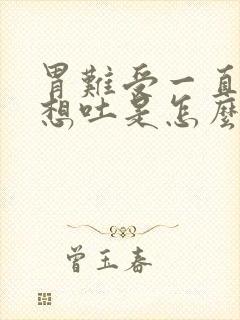 胃難受一直
想吐是怎麼
曾玉春